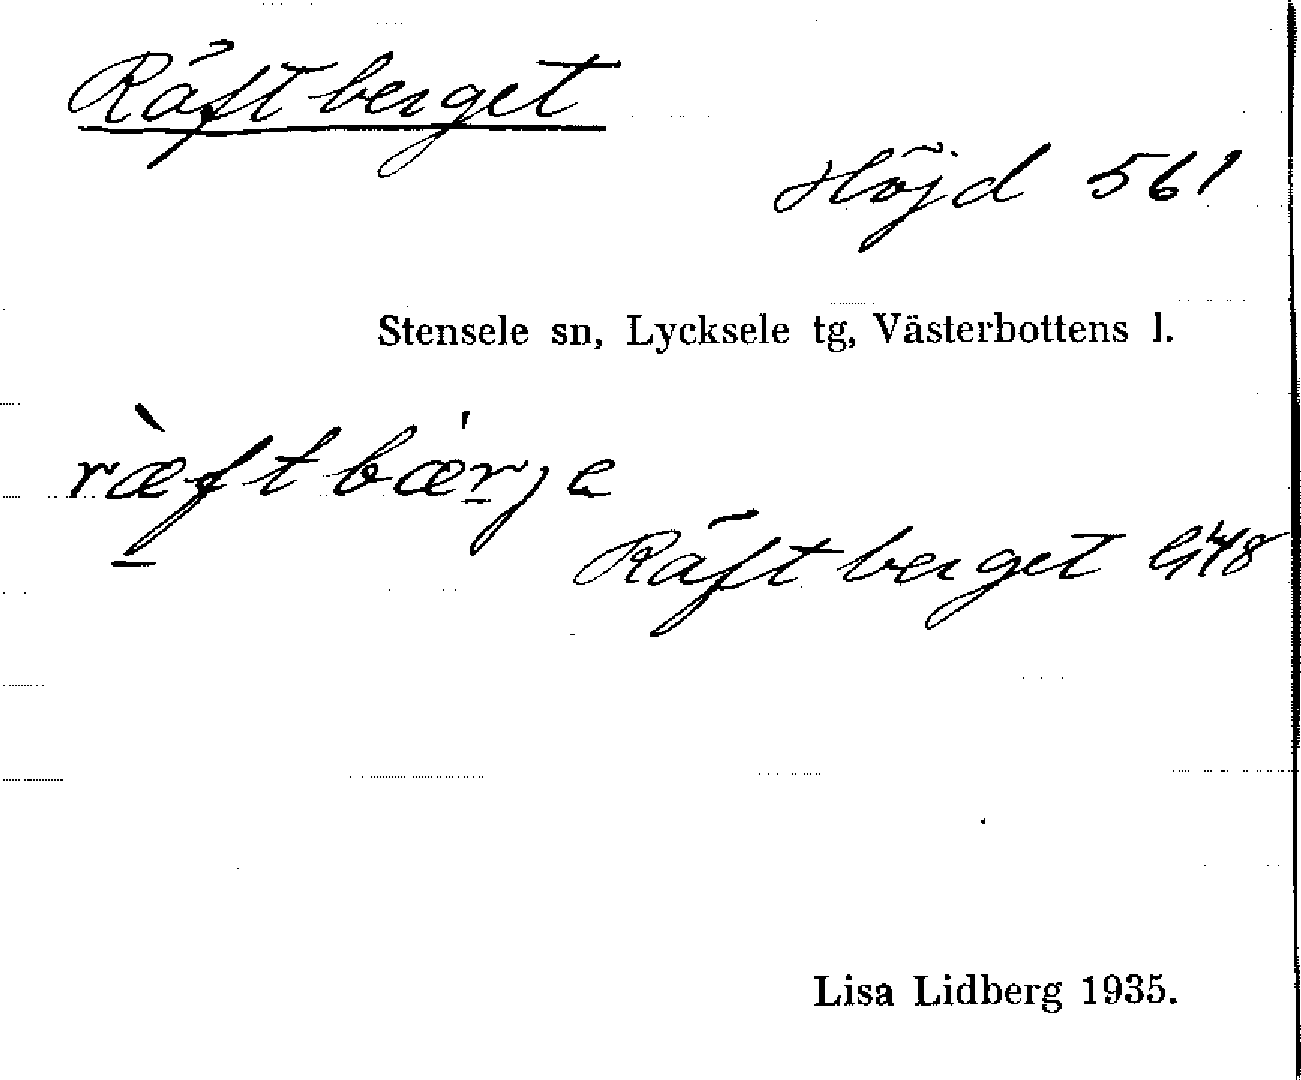 Räftberget
Höjd 561
Stensele sn, Lycksele tg, Västerbottens l.
ræ̀ftbæ'rje
Räftberget G48
Lisa Lidberg 1935.